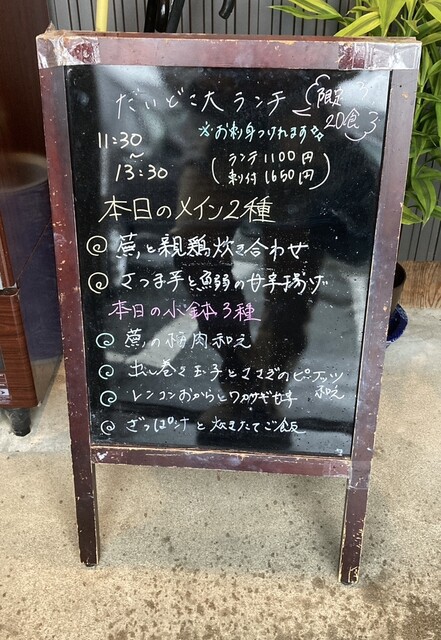 だいどこ大 ランチ 限定20食
11:30
～
13:30
※お刺身つけれます
ランチ 1100円
刺付 1650円
本日のメイン2種
蕗と親鶏炊き合わせ
さつま芋と魚弱の甘辛揚げ
本日の小鉢3種
蕗の梅肉和え
出し巻き玉子とササギのピーナッツ和え
レンコンおからとワカサギ甘辛
ざっぱ汁と炊きたてご飯